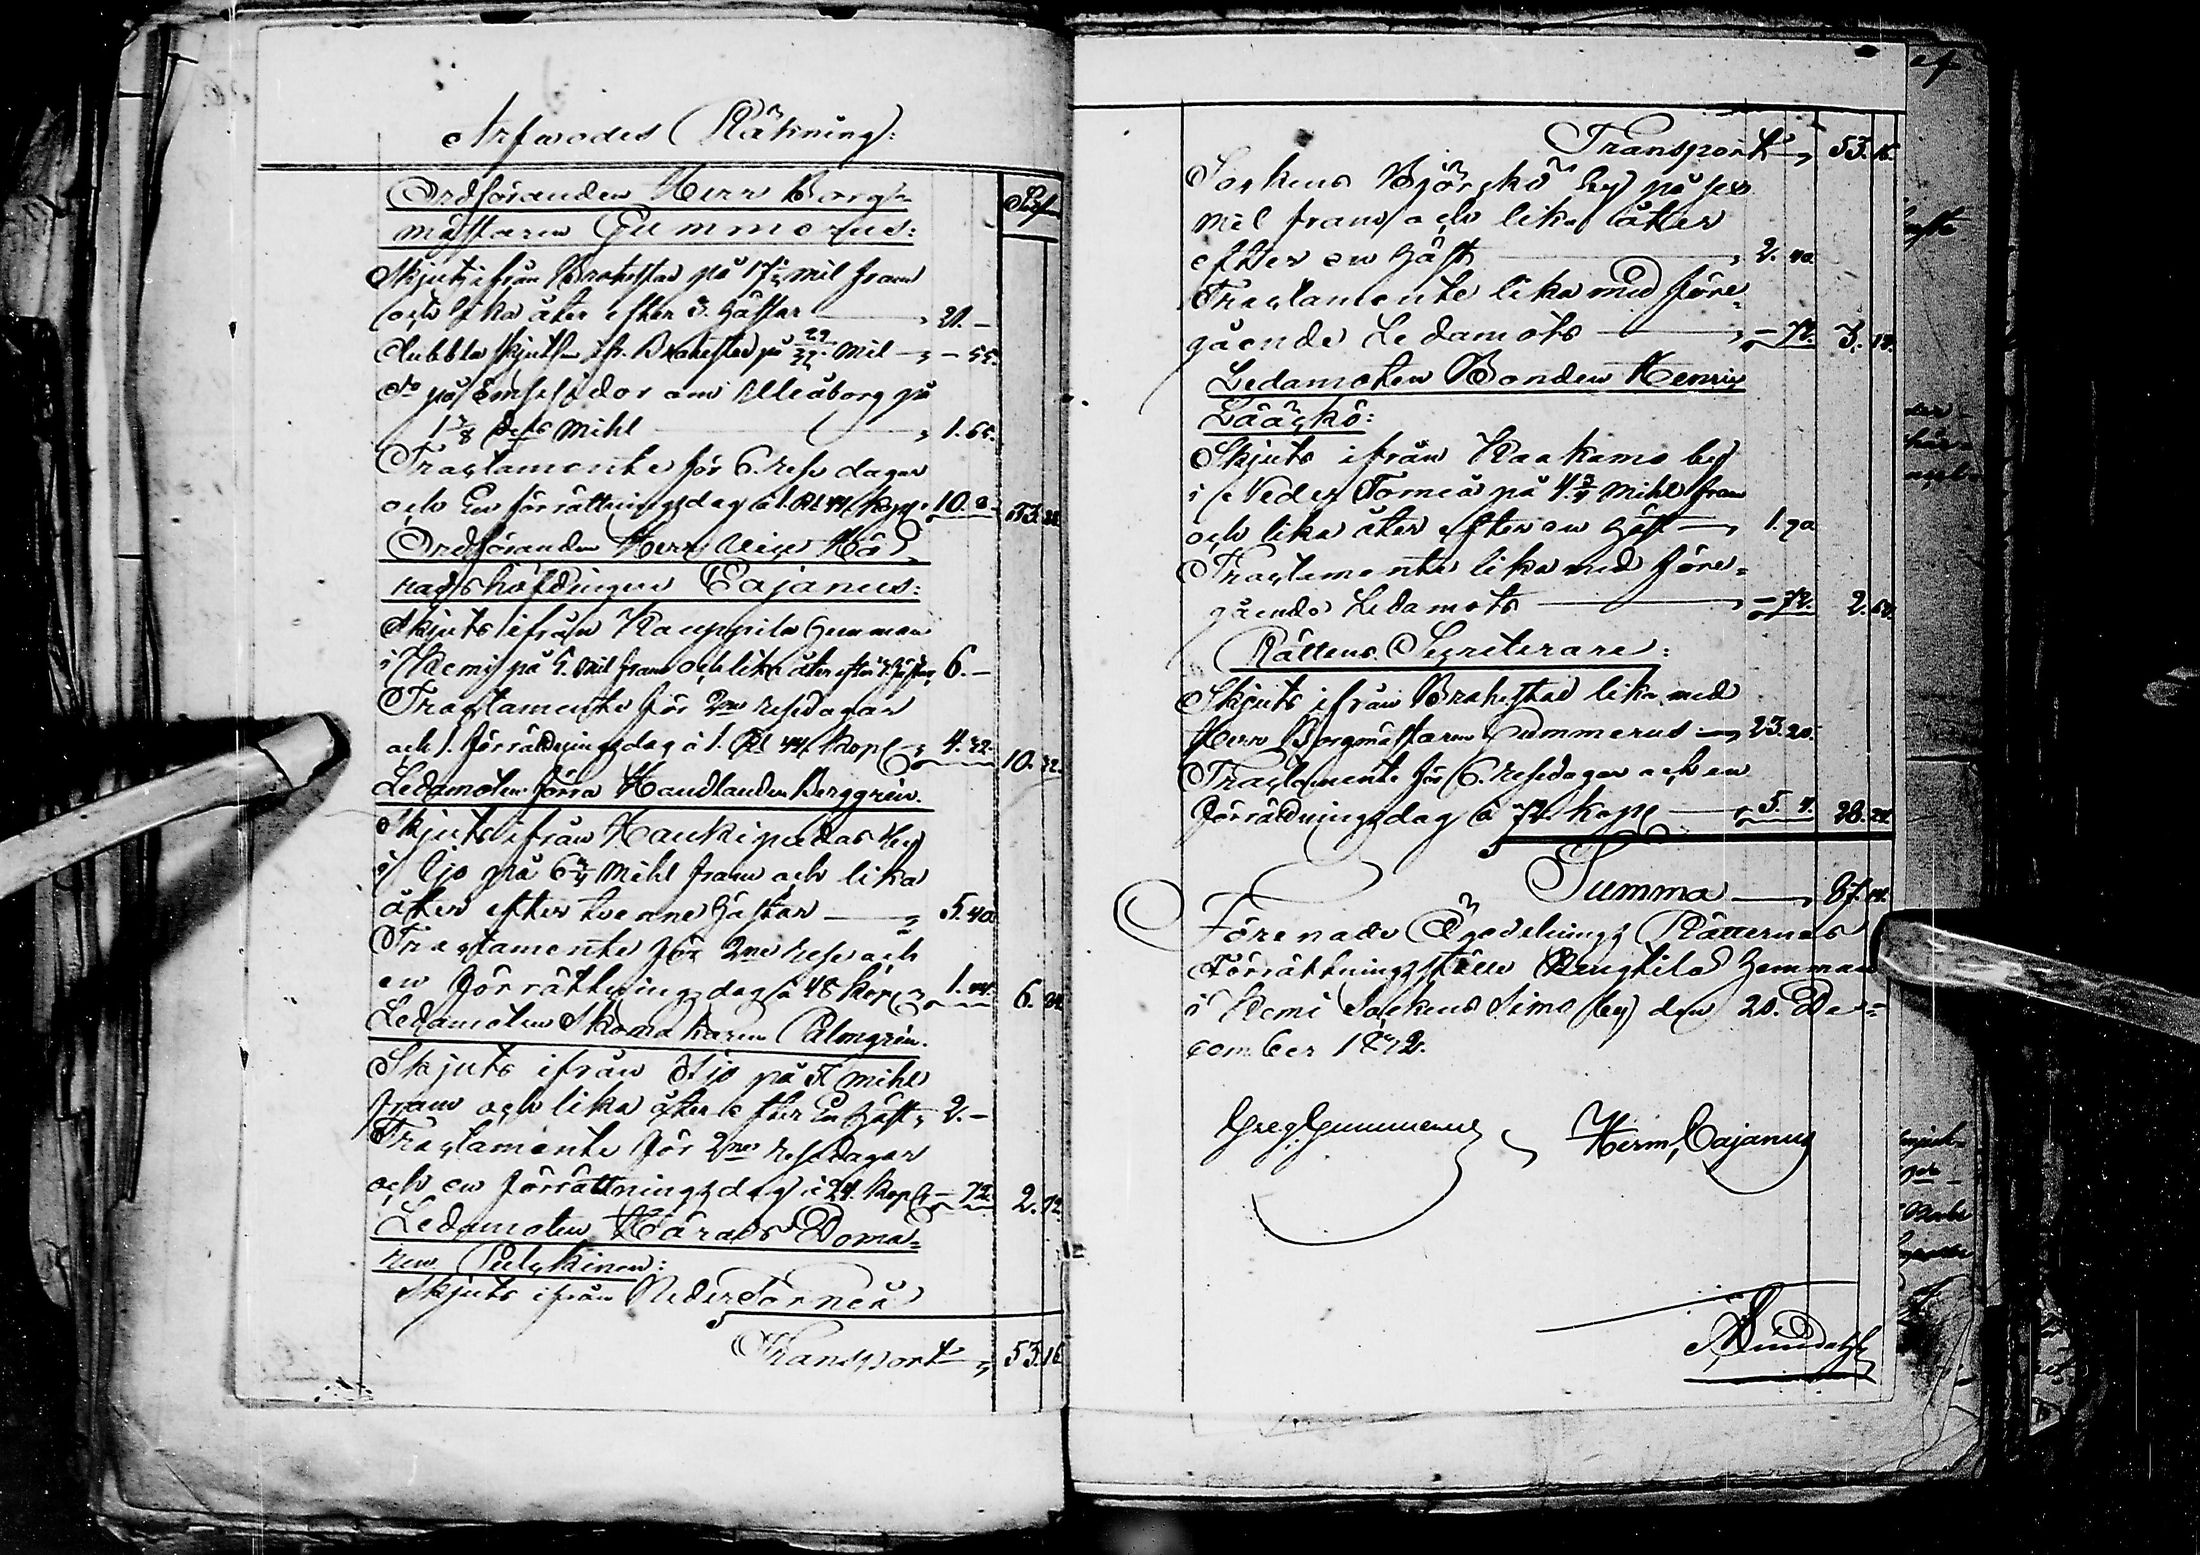 Arfwodes Räkning:
Silfver
Ordföranden Herr Borg-
mästaren Gummerus:
Skjuts ifrån Brahestad på 17½ mil fram
och lika åter efter 3. hästar — 21. —
dubbla skjutsen fr. Brahestad på 29/32 mil — „ — 55.
do på ömse sidor om Uleåborg på
1 3/8 dels mihl — „ 1. 65.
Tractamente för 6. rese dagar
och En förrättningsdag à 1. Rbl 44. kop. „ 10. 8. 33. 28.
Ordföranden Herr Vice Hä-
radshöfdingen Cajanus:
Skjuts ifrån Kauppila hemman
i Kemi på 5. mil fram och lika åter efter 3. hästar, 6. —
Tractamente för 2ne resedagar
och 1. förrättningsdag à 1. Rbl 44. kop. „ 4. 32. 10. 32.
Ledamoten förra Handlanden Berggrén.
Skjuts ifrån Haukipudas by
i Ijo på 6¾ mihl fram och lika
åter efter tvenne hästar — „ 5. 40.
Tractamente för 2ne rese och
en förrättningsdag à 48 kop. „ 1. 44. 6. 84.
Ledamoten Skomakaren Palmgrén.
Skjuts ifrån Ijo på 5 mihl
fram och lika åter efter En häst „ 2. —
Tractamente för 2ne resedagar
och en förrättningsdag à 24. kop. „ — 72. 2. 72.
Ledamoten Härads Doma-
ren Pulckinen:
Skjuts ifrån Neder Torneå
Transport „ 53. 16.
Transport „ 53. 16.
Sockens Björckö by på sex
mil fram och lika åter
efter en häst — „ 2. 40.
Tractamente lika med före-
gående Ledamots — „ — 72. 3. 12.
Ledamoten Bonden Henric
Lääckö:
Skjuts ifrån Kaakamo by
i Neder Torneå på 4¾ mihl fram
och lika åter efter en häst — „ 1. 90.
Tractamente lika med före-
gående Ledamots — „ — 72. 2. 62.
Rättens Secreterare:
Skjuts ifrån Brahestad lika med
Herr Borgmästaren Gummerus — „ 23. 20.
Tractamente för 6. resedagar och en
förrättningsdag à 72. kop. — „ 5. 4. 28. 24.
Summa — „ 87. 14.
Förenade Ägodelnings Rätternas
Förrättningsställe hemman
i Kemi Sockens Simo by den 20. De-
cember 1842.
Greg Gummerus Herm, Cajanus